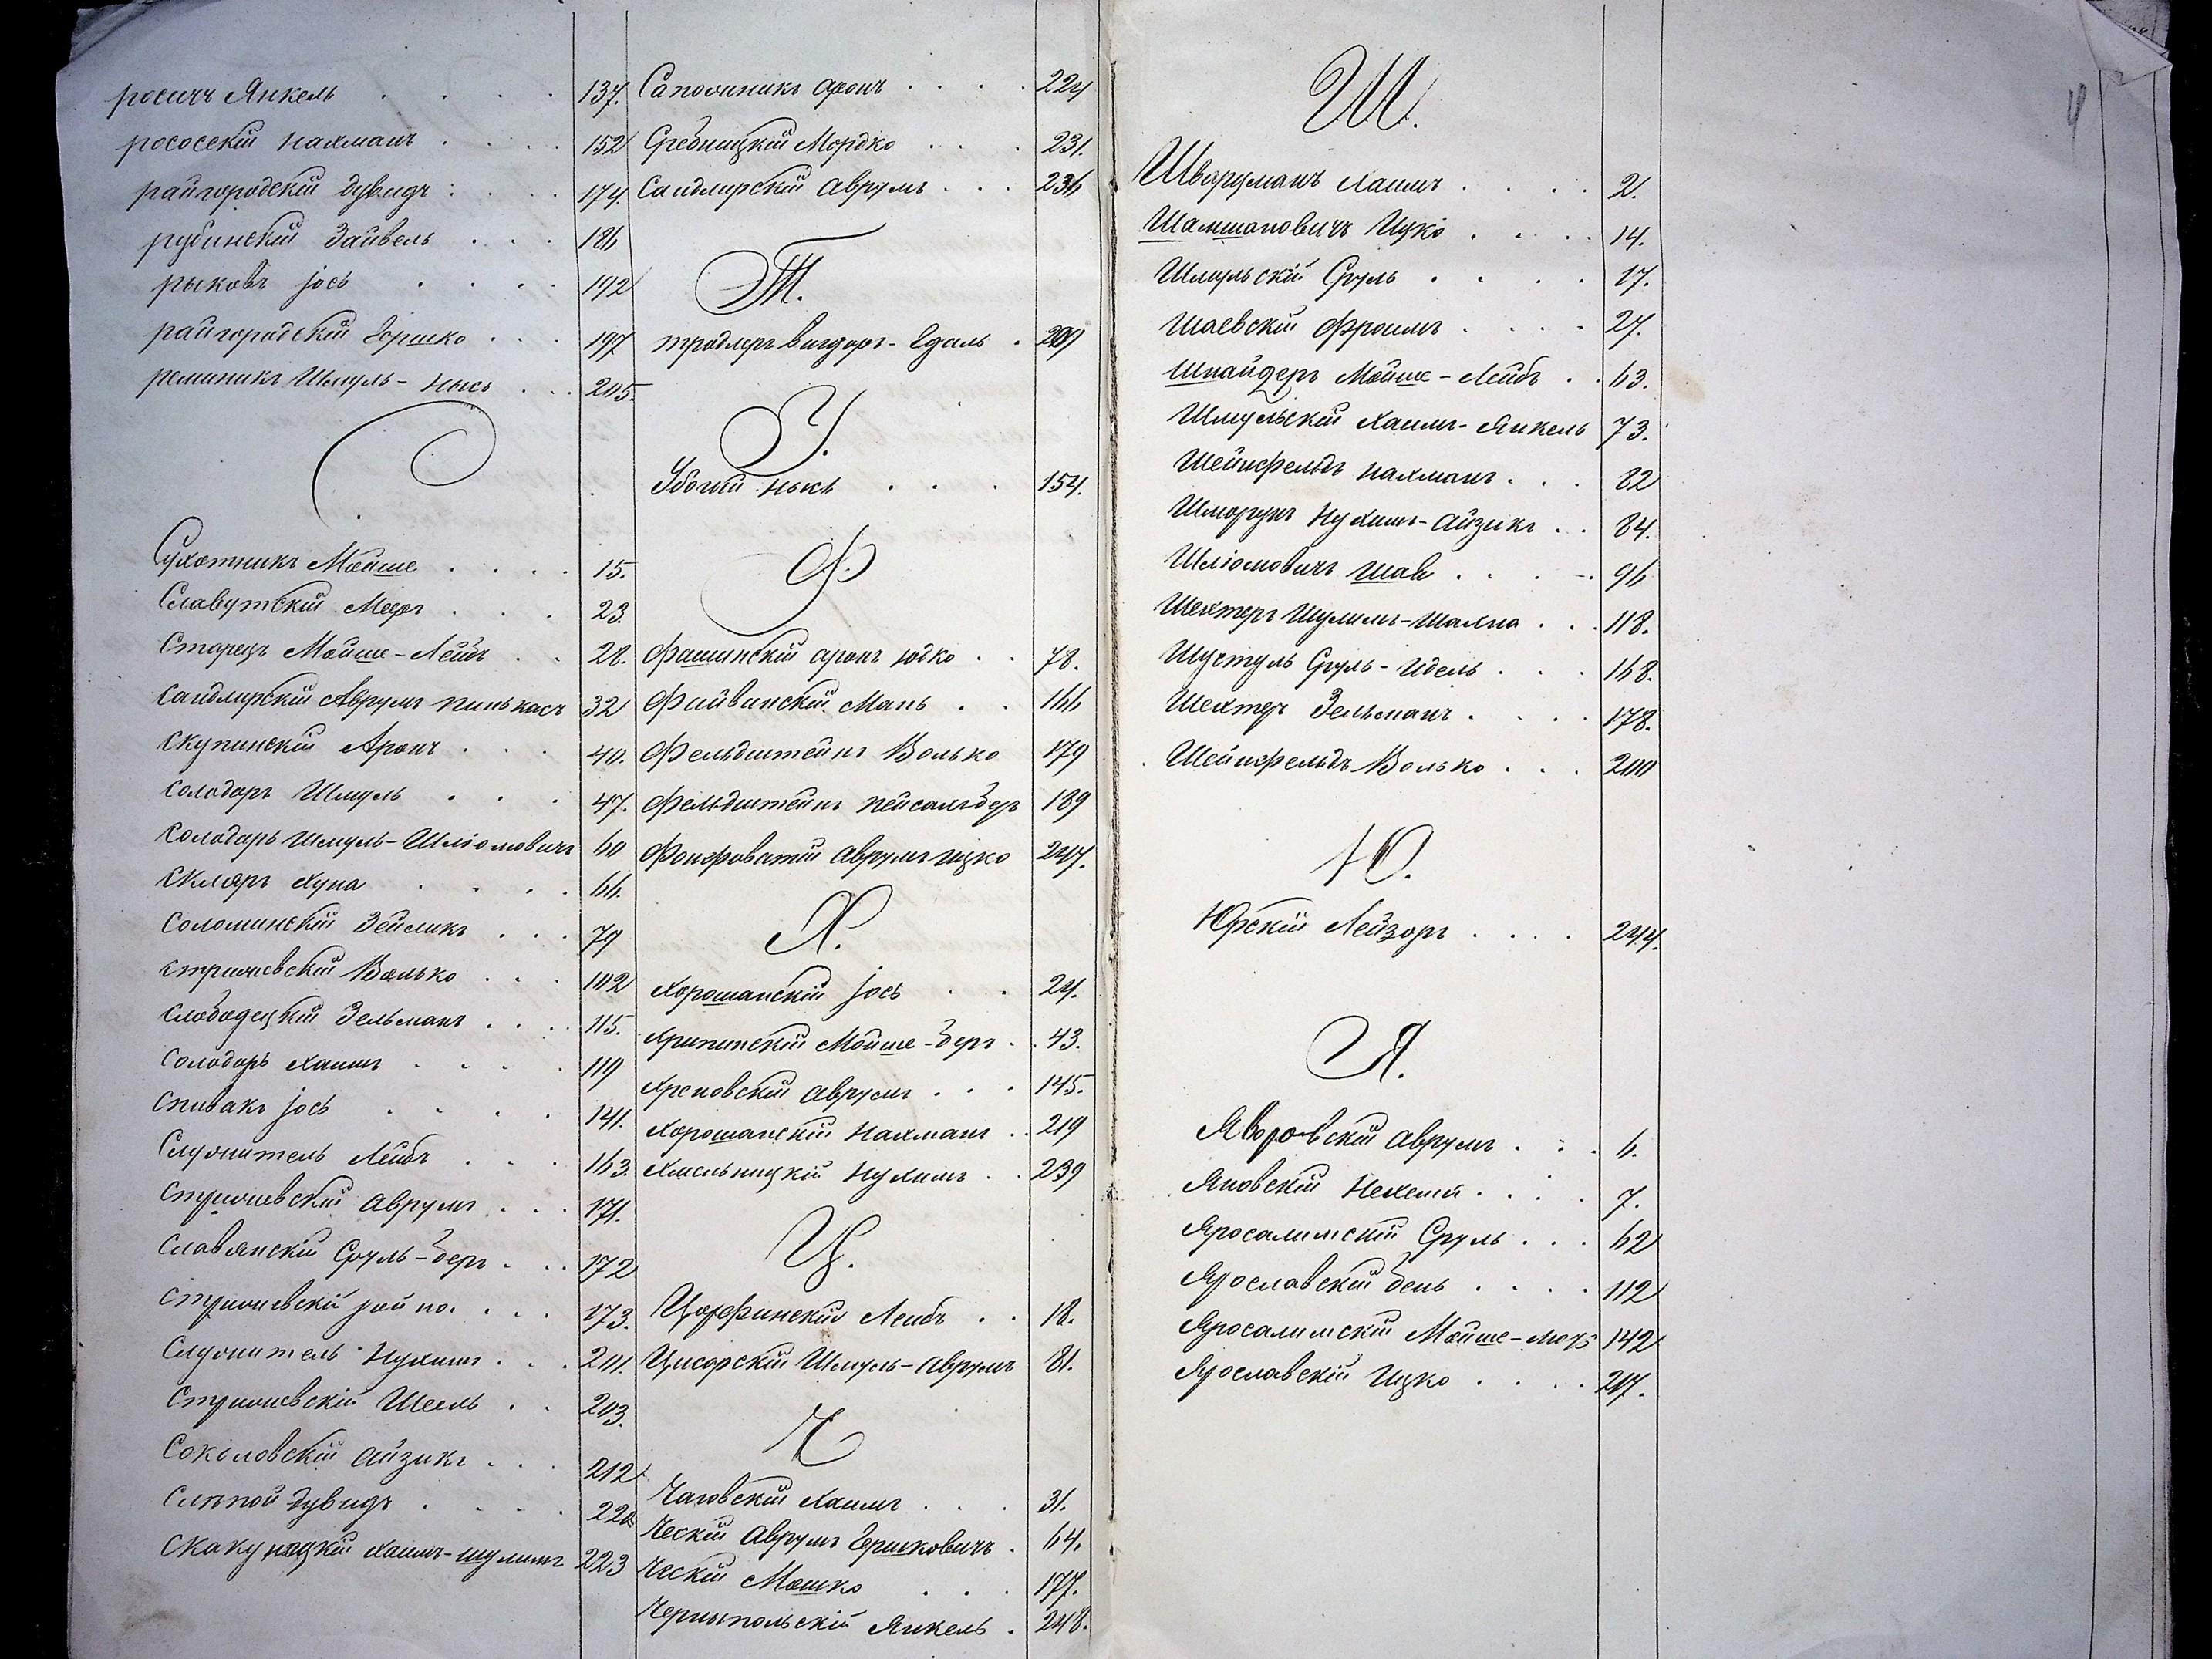 росичъ Янкель . . . . 137.
рососскій Нахманъ . . . . 152
райгородскій Дувидъ . . . . 174.
рубинскій Зайвель . . . 186
рыковъ Іось . . . . 192
райгородскій Гершко . . . 197
реминикъ Шмуль-Нысь . . . 205.
С
Сухотникъ Мойше . . . . 15.
Славутскій Меръ . . . 23.
Старецъ Мойше-Лейбъ . . 28.
Сандлирскій Аврумъ Пинькасъ 32
Скупинскій Аронъ . . . 40.
Солодоръ Шмуль . . . 47.
Солодарь Шмуль-Шліомовичъ 60
Скляръ Хуна . . . . 66.
Соломинскій Зейликъ . . . 79
Стрижевскій Волько . . . 102
Слободецкій Зельманъ . . . . 115.
Солодорь Хаимъ . . . . 119
Спивакъ Іось . . . . 141.
Служитель Лейбъ . . . 163.
Стрижевскій Аврумъ . . . 171.
Славянскій Сруль-Беръ . . . 172
Стрижевскій Іойно . . . 173.
Служитель Нухимъ . . . 201.
Стрижевскій Шеель . . 203.
Соколовскій Айзикъ . . . 212
Слѣпой Дувидъ . . . . 220
Скакунацкій Хаимъ-Шулимъ 223
Сапожникъ Аронъ . . . . 224
Сребницкій Мордко . . . 231.
Сандлирскій Аврумъ . . . 236
Т.
тродлеръ Вигдоръ-Едаль . 209
У.
Убогій Нысь . . . 154.
Ф.
Фашинскій Аронъ Юдко . . 78.
Файвинскій Мань . . 166
Фельдштейнъ Волько 179
Фельдштейнъ Пейсахъ Беръ 189
Фонфроватій Аврумъ Ицко 247.
Х.
Хорошанскій Іось . . 24.
Хрипинскій Мойше-Беръ . . 43.
Хреновскій Аврумъ . . . 145.
Хорошанскій Нахманъ . . 219
Хмельницкій Нухимъ . . 239
Ц.
Цоффинскій Лейбъ . . 18.
Цисорскій Шмуль-Аврумъ 81.
Ч
Чаговскій Хаимъ . . . 31.
Ческій Аврумъ Гершковичъ . 64.
Ческій Мошко . . . 177.
Чернопольскій Янкель . 248.
Ш.
Шварцманъ Хаимъ . . . . 2.
Шамшоновичъ Ицко . . . . 14.
Шмульскій Сруль . . . . 17.
Шаевскій Фроимъ . . . . 27.
Шнайдеръ Мойше-Лейбъ . . 63.
Шмульскій Хаимъ-Янкель 73.
Шейнфельдъ Нахманъ . . . 82
Шморгунъ Нухимъ-Айзикъ . . 84.
Шліомовичъ Шая . . . . 96
Шехтеръ Шулимъ-Шахна . . . 118.
Шустуль Сруль-Идель . . . 168.
Шехтеръ Зельманъ . . . . 178.
Шейнфельдъ Волько . . . 200
Ю.
Юрскій Лейзоръ . . . . 244.
Я.
Яворовскій Аврумъ . . . . 6.
Яновскій Нехемія . . . . 7.
Яросалимскій Сруль . . . 62
Ярославскій Бень . . . . 112
Яросалимскій Мойше-Мочъ 142
Ярославскій Ицко . . . . 217.